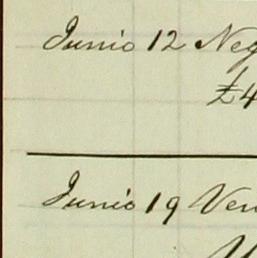 Junio 12 Neg
£4
Junio 19 Ven